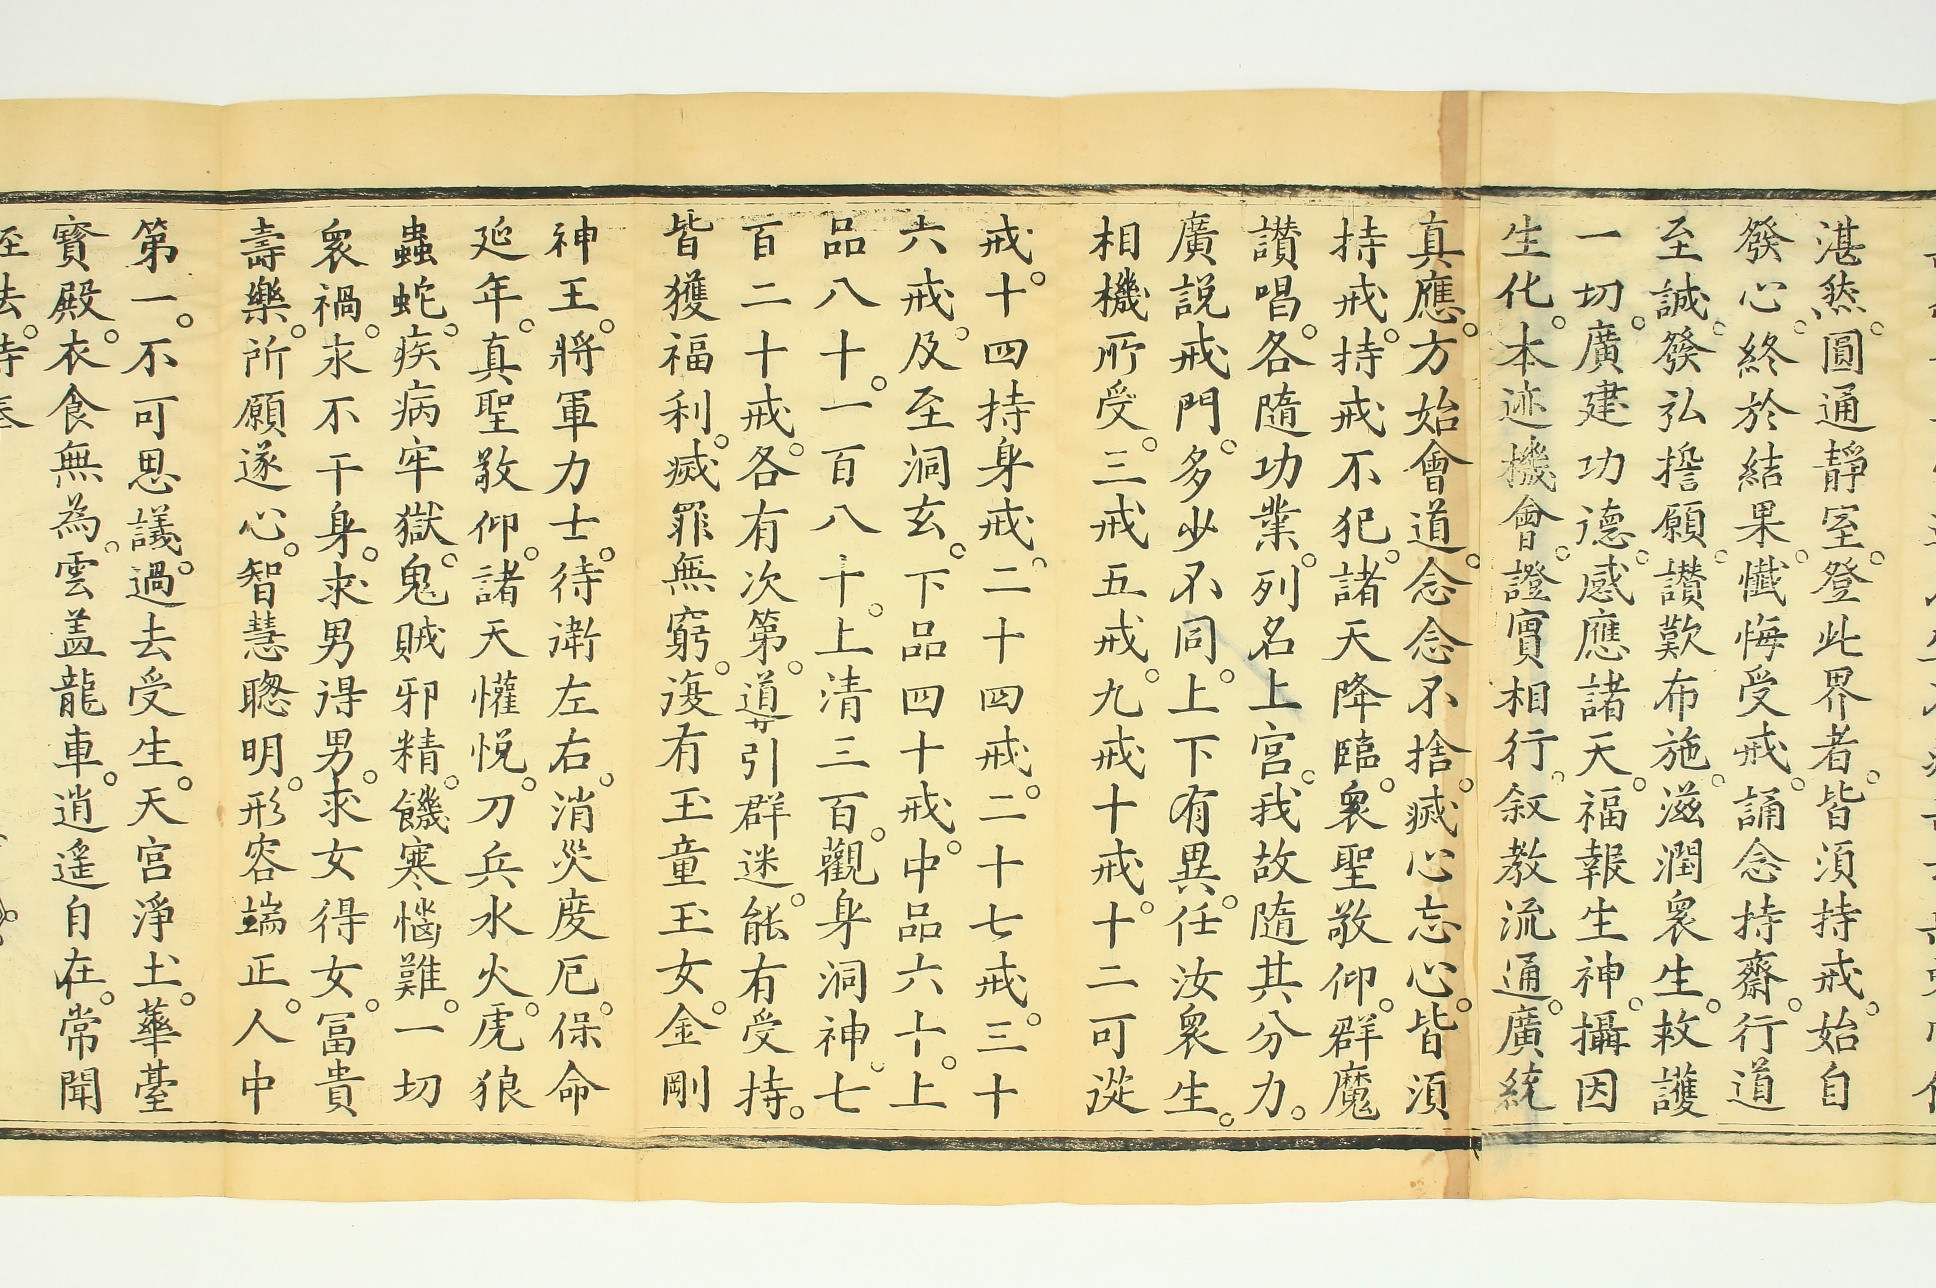 湛然。圓通靜室。登此界者。皆須持戒。始自
發心。終於結果。懺悔受戒。誦念持齋。行道
至誠。發弘擔願。讚歎布施。滋潤衆生。救護
一切。廣建功德。感應諸天。福報生神。攝因
生化。本迹機會。證實相行。叙教流通。廣統
真應。方始會道。念念不捨。滅心忘心。皆須
持戒。持戒不犯。諸天降臨。衆聖敬仰。群魔
讃唱。各隨功業。列名上宫。我故隨其分力。
廣説戒門。多少不同。上下有異。任汝衆生。
相機所受。三戒五戒。九戒十戒。十二可從
戒。十四持身戒。二十四戒。二十七戒。三十
六戒。及至洞玄。下品四十戒。中品六十。上
品八十。一百八十。上清三百。觀身洞神。七
百二十戒。各有次第。導引群迷。能有受持。
皆獲福利。滅罪無窮。復有玉童玉女。金剛
神王。將軍力士。待衛左右。消災度厄。保命
延年。真聖敬仰。諸天懽悅。刀兵水火。虎狼
蟲蛇。疾病牢獄。鬼賊邪精。饑寒惱難。一切
衆禍。永不干身。求男得男。求女得女。冨貴
壽樂。所願遂心。智慧聰明。形容端正。人中
第一。不可思議。過去受生。天宫淨土。華臺
寳殿。衣食無為。雲盖龍車。逍遥自在。常聞